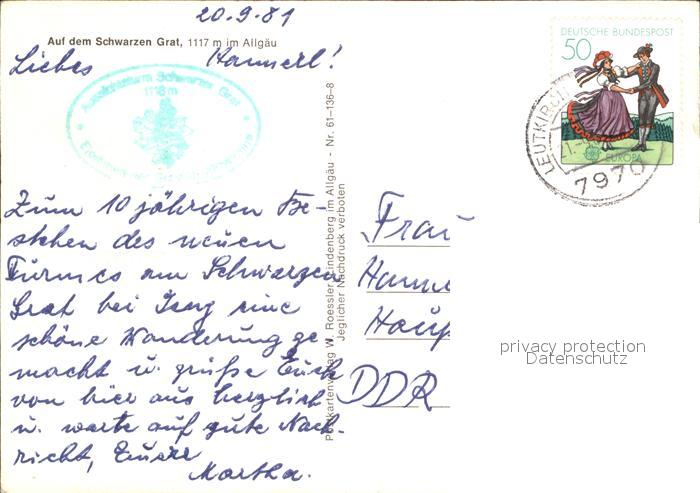 20.9.81
Auf dem Schwarzen Grat, 1117 m im Allgäu
Liebes Hannerl!
Aussichtsturm Schwarzer Grat
1118 m
Zum 10 jährigen Be-
stehen des neuen
Turmes am Schwarzen
Grat bei Isny eine
schöne Wanderung ge
macht u. grüße Euch
von hier aus herzlich
u. warte auf gute Nach-
richt, Euere
Martha.
Postkartenverlag W. Roessler, Lindenberg im Allgäu - Nr. 61-136-8
Jeglicher Nachdruck verboten
DEUTSCHE BUNDESPOST
50
EUROPA
LEUTKIRCH
21.-9
7970
Frau
Hanne
Haup
DDR
privacy protection
Datenschutz